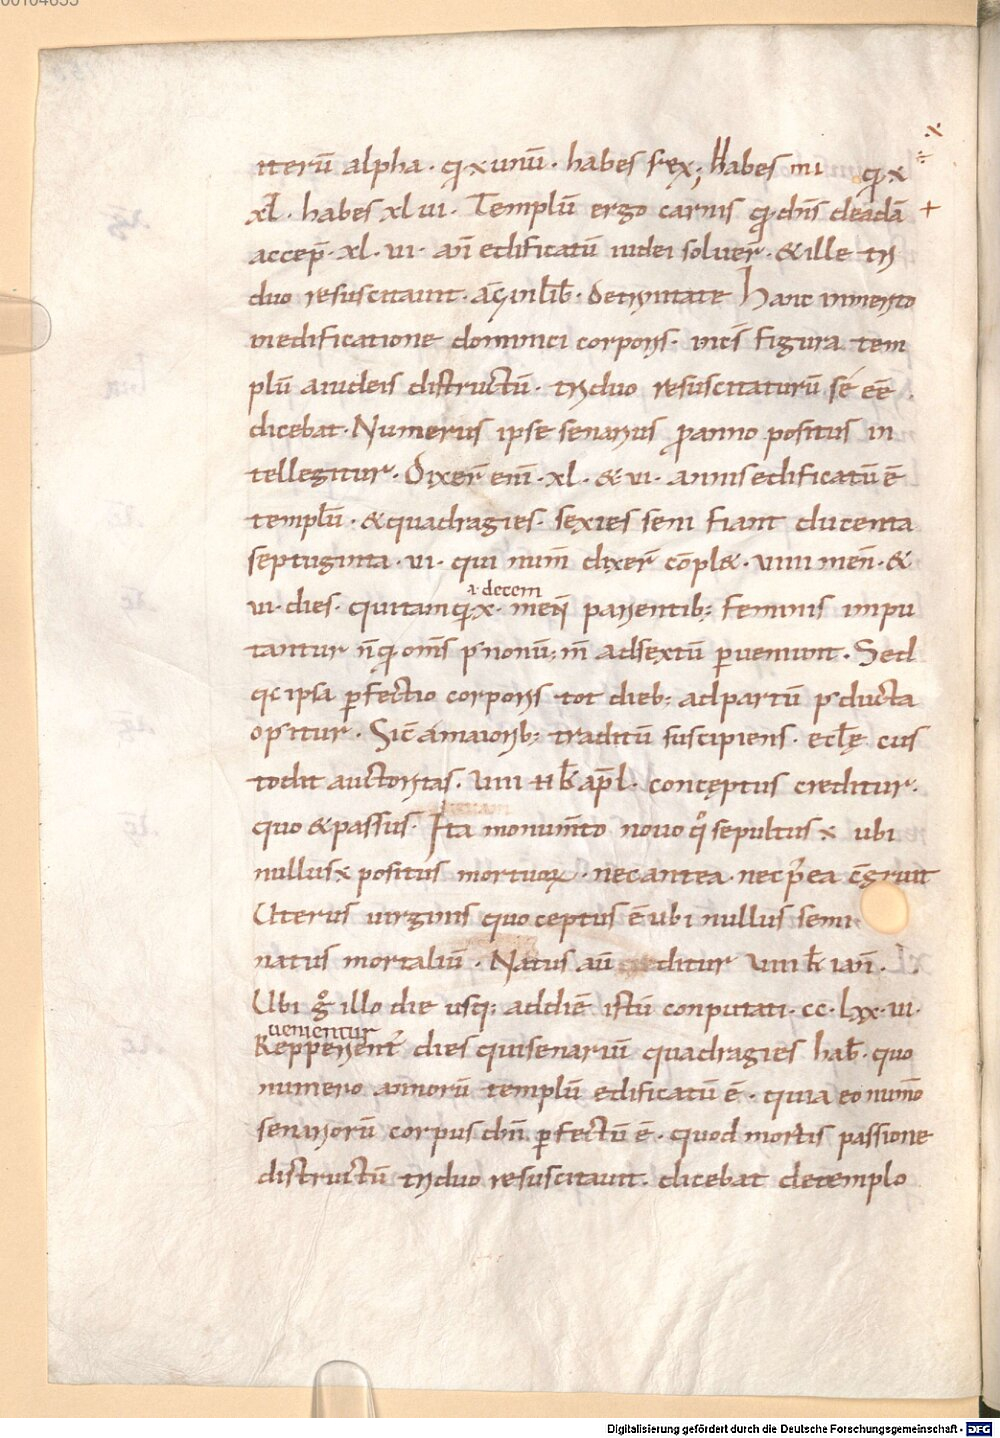 00104655
iterū alpha · q̄ x unū · habes sex; Habes mi q̄ x
xl · habes xl vi · Templū ergo carnis q̄ dn̄s deadā
accep̄ · xl · vi · an̄ edificatū iudei soluer̄ · & ille tri
duo resuscitauit · ac̄ inlib̄ · detrinitate Hanc inmerito
inedificatione dominici corporis · uices figura tem
plū aiudeis distructū · triduo resuscitaturū sé eē ·
dicebat · Numerus ipse senarius p̄anno positus in
tellegitur · Dixer̄ enī · xl · & vi · annisedificatū ē
templū · & quadragies · sexies seni fiant ducenta
septuginta · vi · qui num̄ dixer̄ cōpl& · viiii men̄ · &
a · decem
vi · dies · quitamq̄ · x · men̄ parientib; feminis impu
tantur n̄q̄ om̄s p'nonū; m̄ adsextū p̄ueniunt · Sed
qc ipsa p̄fectio corporis tot dieb; adpartū p'ducta
op'itur · Sic̄ amaiorib; traditū suscipiens · eccl̄ę cus
todit auctoritas · viiii k̄ ap̄l · conceptus creditur ·
quo & passus · Ita monum̄to nouo q̊ sepultus x ubi
nullus x positus mortuoꝝ · nec antea · nec p̄ea c̄gruit
Uterus uirginis quo ceptus ē ubi nullus semi
natus mortaliū · Natus aū creditur viiii k̄ ian̄ ·
Ubi g̊ illo die usq; addiē istū conputati · cc · lxx · vi ·
uenientur
Repperient̄ dies quisenariū quadragies hab̄ · quo
numero annorū templū edificatū ē · quia eo num̄o
senariorū corpus dn̄i p̄fectū ē · quod mortis passione
distructū triduo resuscitauit · dicebat detemplo
Digitalisierung gefördert durch die Deutsche Forschungsgemeinschaft - DFG